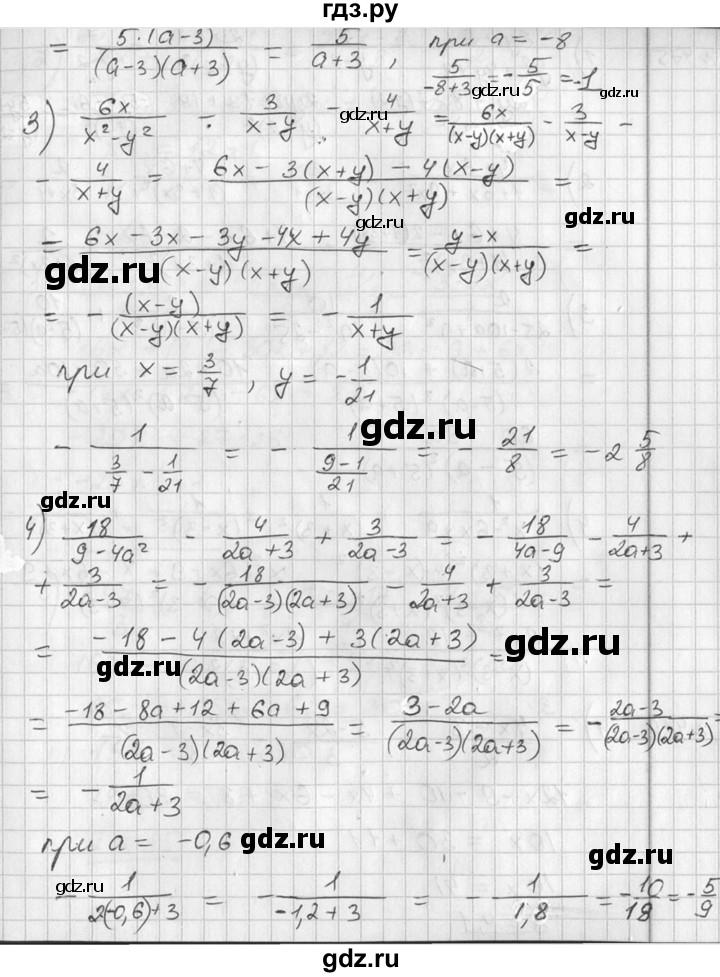 гдз.ру
= 5·(a-3)/((a-3)(a+3)) = 5/(a+3), при a = -8
5/(-8+3) = -5/5 = -1
gdz.ru
3) 6x/(x²-y²) - 3/(x-y) - 4/(x+y) = 6x/((x-y)(x+y)) - 3/(x-y) -
- 4/(x+y) = (6x - 3(x+y) - 4(x-y))/((x-y)(x+y)) =
gdz.ru
= (6x - 3x - 3y - 4x + 4y)/((x-y)(x+y)) = (y-x)/((x-y)(x+y)) =
gdz.ru
= - (x-y)/((x-y)(x+y)) = - 1/(x+y)
gdz.ru
при x = 3/7, y = -1/21
gdz.ru
- 1/(3/7 - 1/21) = - 1/((9-1)/21) = - 21/8 = -2 5/8
gdz.ru
4) 18/(9-4a²) - 4/(2a+3) + 3/(2a-3) = - 18/(4a-9) - 4/(2a+3) +
gdz.ru
+ 3/(2a-3) = - 18/((2a-3)(2a+3)) - 4/(2a+3) + 3/(2a-3) =
= (-18 - 4(2a-3) + 3(2a+3))/((2a-3)(2a+3)) =
gdz.ru gdz.ru
= (-18 - 8a + 12 + 6a + 9)/((2a-3)(2a+3)) = (3-2a)/((2a-3)(2a+3)) = - (2a-3)/((2a-3)(2a+3)) =
= - 1/(2a+3)
gdz.ru
при a = -0,6
gdz.ru gdz.ru
gdz.ru
- 1/(2(-0,6)+3) = - 1/(-1,2+3) = - 1/1,8 = -10/18 = -5/9
gdz.ru gdz.ru